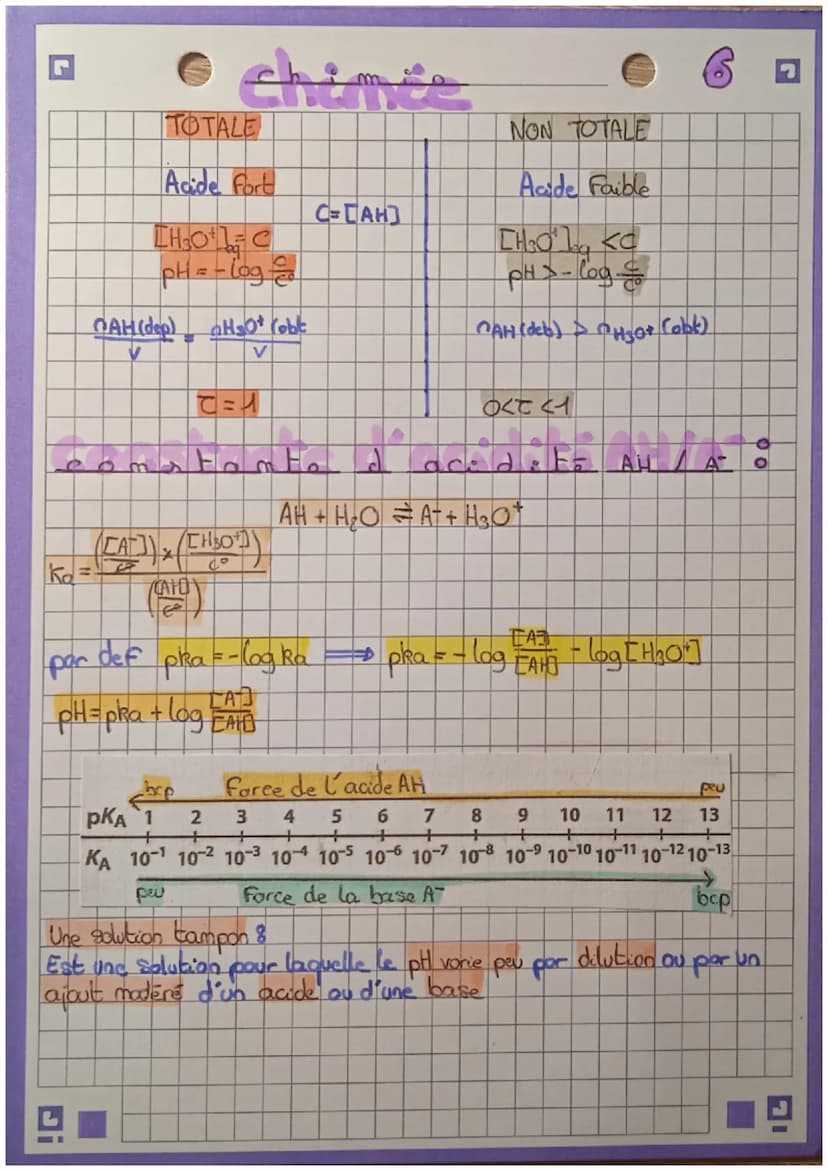 chimie 6
TOTALE NON TOTALE
Acide fort Acide Faible
C=[AH]
[H3O+]éq = C [H3O+]éq < C
pH = -log C/C° pH > -log C/C°
nAH(dep)/V = nH3O+(obt/V nAH(deb) > nH3O+(obt)
τ = 1 0<τ<1
constante d'acidité AH / A- :
AH + H2O ⇌ A- + H3O+
Ka = (([A-])/C° × ([H3O+])/C°) / ([AH]/C°)
par def pka = -log ka ⟹ pka = -log [A-]/[AH] - log[H3O+]
pH = pka + log [A-]/[AH]
bcp Force de l'acide AH peu
pKA 1 2 3 4 5 6 7 8 9 10 11 12 13
KA 10⁻¹ 10⁻² 10⁻³ 10⁻⁴ 10⁻⁵ 10⁻⁶ 10⁻⁷ 10⁻⁸ 10⁻⁹ 10⁻¹⁰ 10⁻¹¹ 10⁻¹² 10⁻¹³
peu Force de la base A- bcp
Une solution tampon :
Est une solution pour laquelle le pH varie peu par dilution ou par un
ajout modéré d'un acide ou d'une base